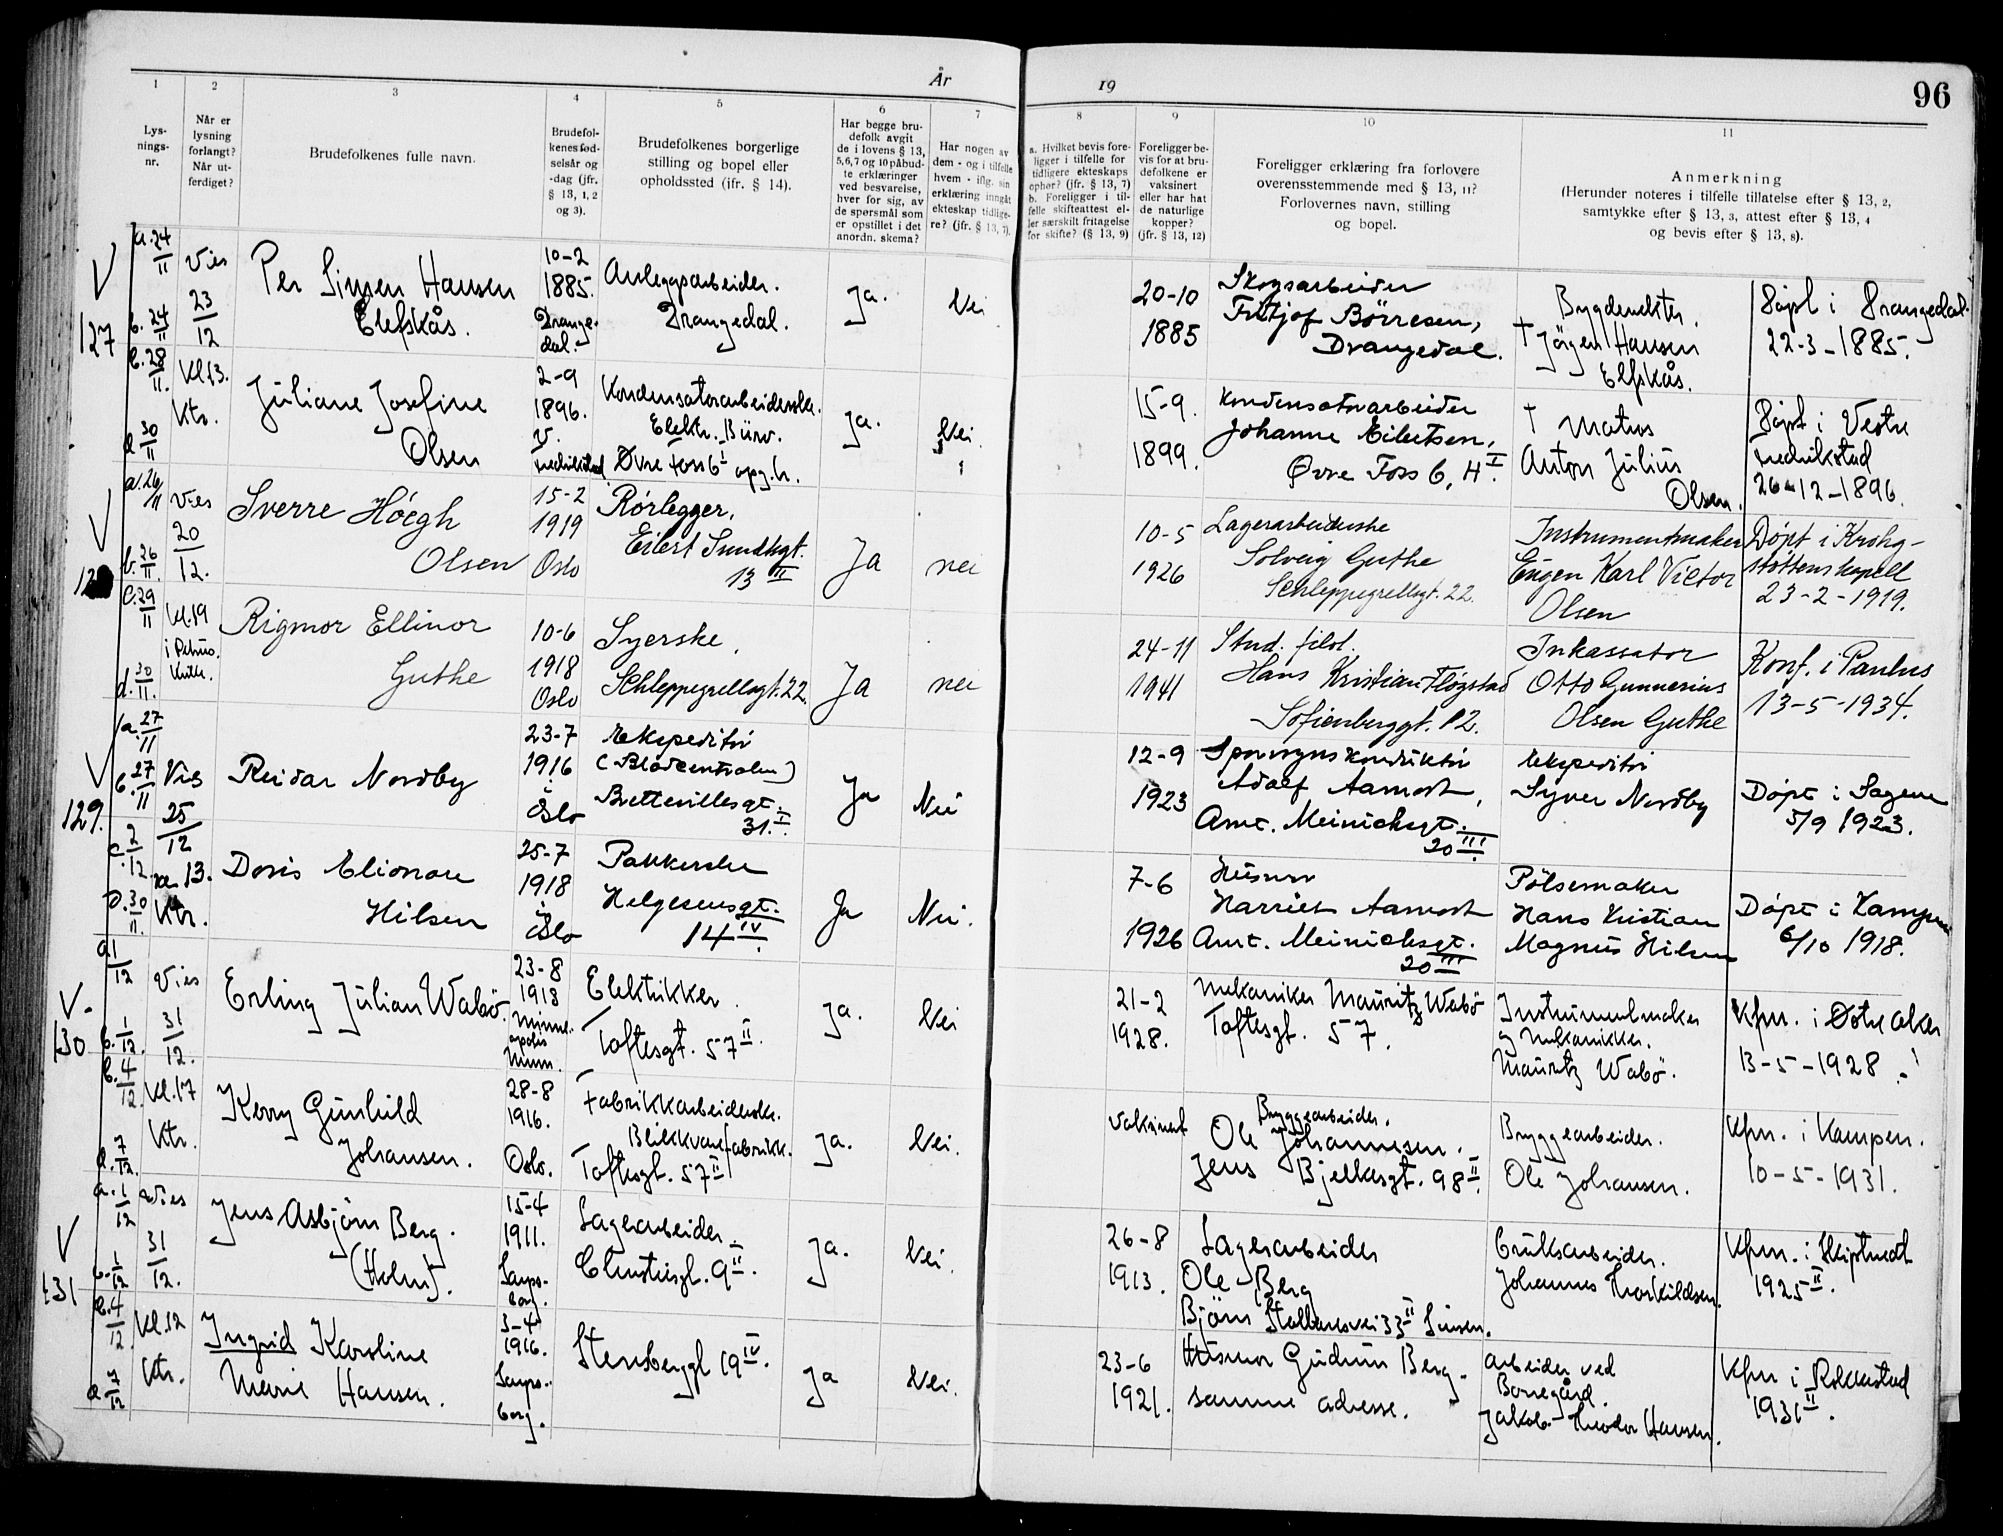 År 19
96
1 2 3 4 5 6 7 8 9 10 11
Lys-
nings-
nr.
Når er
lysning
forlangt?
Når ut-
ferdiget?
Brudefolkenes fulle navn.
Brudefol-
kenes fød-
selsår og
-dag (jfr.
§ 13, 1, 2
og 3).
Brudefolkenes borgerlige
stilling og bopel eller
opholdssted (ifr. § 14).
Har begge bru-
defolk avgit
de i lovens § 13,
5,6,7 og 10 påbud-
te erklæringer
ved besvarelse,
hver for sig, av
de spørsmål som
er opstillet i det
anordn. skema?
Har nogen av
dem - og i tilfelle
hvem - iflg. sin
erklæring inngåt
ekteskap tidlige-
re? (jfr. § 13, 7).
a. Hvilket bevis fore-
ligger i tilfelle for
tidligere ekteskaps
ophør? (jfr. § 13, 7)
b. Foreligger i til-
felle skifteattest el-
ler særskilt fritagelse
for skifte? (§ 13, 9)
Foreligger be-
vis for at bru-
defolkene er
vaksinert
eller har hat
de naturlige
kopper?
(jfr. § 13, 12)
Foreligger erklæring fra forlovere
overensstemmende med § 13, 11?
Forlovernes navn, stilling
og bopel.
Anmerkning
(Herunder noteres i tilfelle tillatelse efter § 13, 2,
samtykke efter § 13, 3, attest efter § 13, 4
og bevis efter § 13, 8).
127
a. 24/11
b. 24/11
c. 28/11.
d 30/11
Vies
23/12
Kl 13.
Ktr.
Per Hansen
Elefskås.
10-2
1885.
Drange-
dal.
Anleggsarbeider.
Drangedal.
Ja.
Nei
20-10
1885
Skogsarbeider
Fritjof Börresen,
Drangedal.
† Jörgen Hansen
Elfskås.
Döpt i Drangedal
22-3-1885.
Juliane Josefine
Olsen
2-9
1896.
V.
Fredrikstad
Kondensatorarbeiderske.
Elektr. Büro.
Øvre Foss 6 I opg. h.
Ja.
Nei.
15-9.
1899.
Kondensatorarbeider
Johanne Eilertsen,
Øvre Foss 6, H I.
† Matros
Anton Julius
Olsen.
Döpt i Vestre
Fredrikstad
26-12-1896.
a. 26/11
b. 26/11
c. 29/11
d. 30/11.
Vies
20/12.
kl. 19
i Petrus.
Sverre Höegh
Olsen
15-2
1919
Oslo
Rörlegger,
Eilert Sundtsgt.
13 II
Ja
nei
10-5
1926
Lagerarbeiderske
Solveig Guthe
Schleppegrellsgt. 22.
Instrumentmaker
Eugen Karl Victor
Olsen
Døpt i Krohg-
støttens kapell
23-2-1919.
Rigmor Ellinor
Guthe
10-6
1918
Oslo
Syerske,
Schleppegrellsgt. 22.
Ja
nei
24-11
1941
Stud. filol.
Hans Kristian Fløgstad
Sofienberggt. 12.
Inkassator
Otto Gunnerius
Olsen Guthe
Konf. i Paulus
13-5-1934.
129.
a. 27/11
b. 27/11
c. 2/12.
d. 30/11.
Vies
25/12
kl 13.
Ktr.
Reidar Nordby
23-7
1916
i
Oslo
Ekspeditör
(Bladcentralen)
Brettevillesgt.
31. II.
Ja
Nei
12-9
1923
Sporvognskonduktör
Adolf Aamodt,
Amt. Meinichsgt.
20 III.
Ekspeditör
Syver Nordby
Døpt i Sagene
5/9 1923.
Doris Elionore
Hilsen
25-7
1918
i
Oslo
Pakkerske
Helgesensgt.
14 IV.
Ja
Nei.
7-6
1926
Husmor
Harriet Aamodt
Amt. Meinichsgt.
20 III
Pölsemaker
Hans Kristian
Magnus Hilsen
Døpt i Kampen
6/10 1918.
130
a 1/12
b. 1/12.
c. 4/12.
d. 7/12.
Vies
31/12.
Kl. 17
Ktr.
Erling Julian Wabö.
23-8
1918
Minne-
apolis
Minn.
Elektrikker.
Toftesgt. 57 II.
Ja.
Nei
21-2
1928.
Mekaniker Mauritz Wabö
Toftesgt. 57.
Instrumentmaker
og mekanikker.
Mauritz Wabö.
Kfm. i Østre Aker
13-5-1928.
Kerry Gunhild
Johansen.
28-8
1916.
Oslo.
Fabrikkarbeiderske.
Blikkvarefabrikk.
Toftesgt. 57 II.
Ja.
Nei.
Vaksinert
Bryggearbeider.
Ole Johannesen.
Jens Bjelkesgt. 98 II.
Bryggearbeider.
Ole Johansen.
Kfm. i Kampen.
10-5-1931.
131
a. 1/12
b. 1/12
c. 4/12
d. 7/12
Vies
31/12.
Kl. 12
Ktr.
Jens Asbjörn Berg.
(Holm).
15-4
1911.
Sarps-
borg.
Lagerarbeider.
Christiesgt. 9 II.
Ja.
Nei.
26-8
1913.
Lagerarbeider
Ole Berg
Björn Stallaresvei 33 II Sinsen.
Bruksarbeider.
Johannes Thorkildsen.
Kfm. i Skiptvedt
1925 II.
Ingrid Karoline
Marie Hansen.
3-4
1916.
Sarps-
borg.
Stensberggt 19 IV.
Ja
Nei.
23-6
1921.
Husmor Gudrun Berg.
samme adresse.
Arbeider ved
Borregård.
Jakob Theodor Hansen.
Kfm i Rokkestad
1931 II.